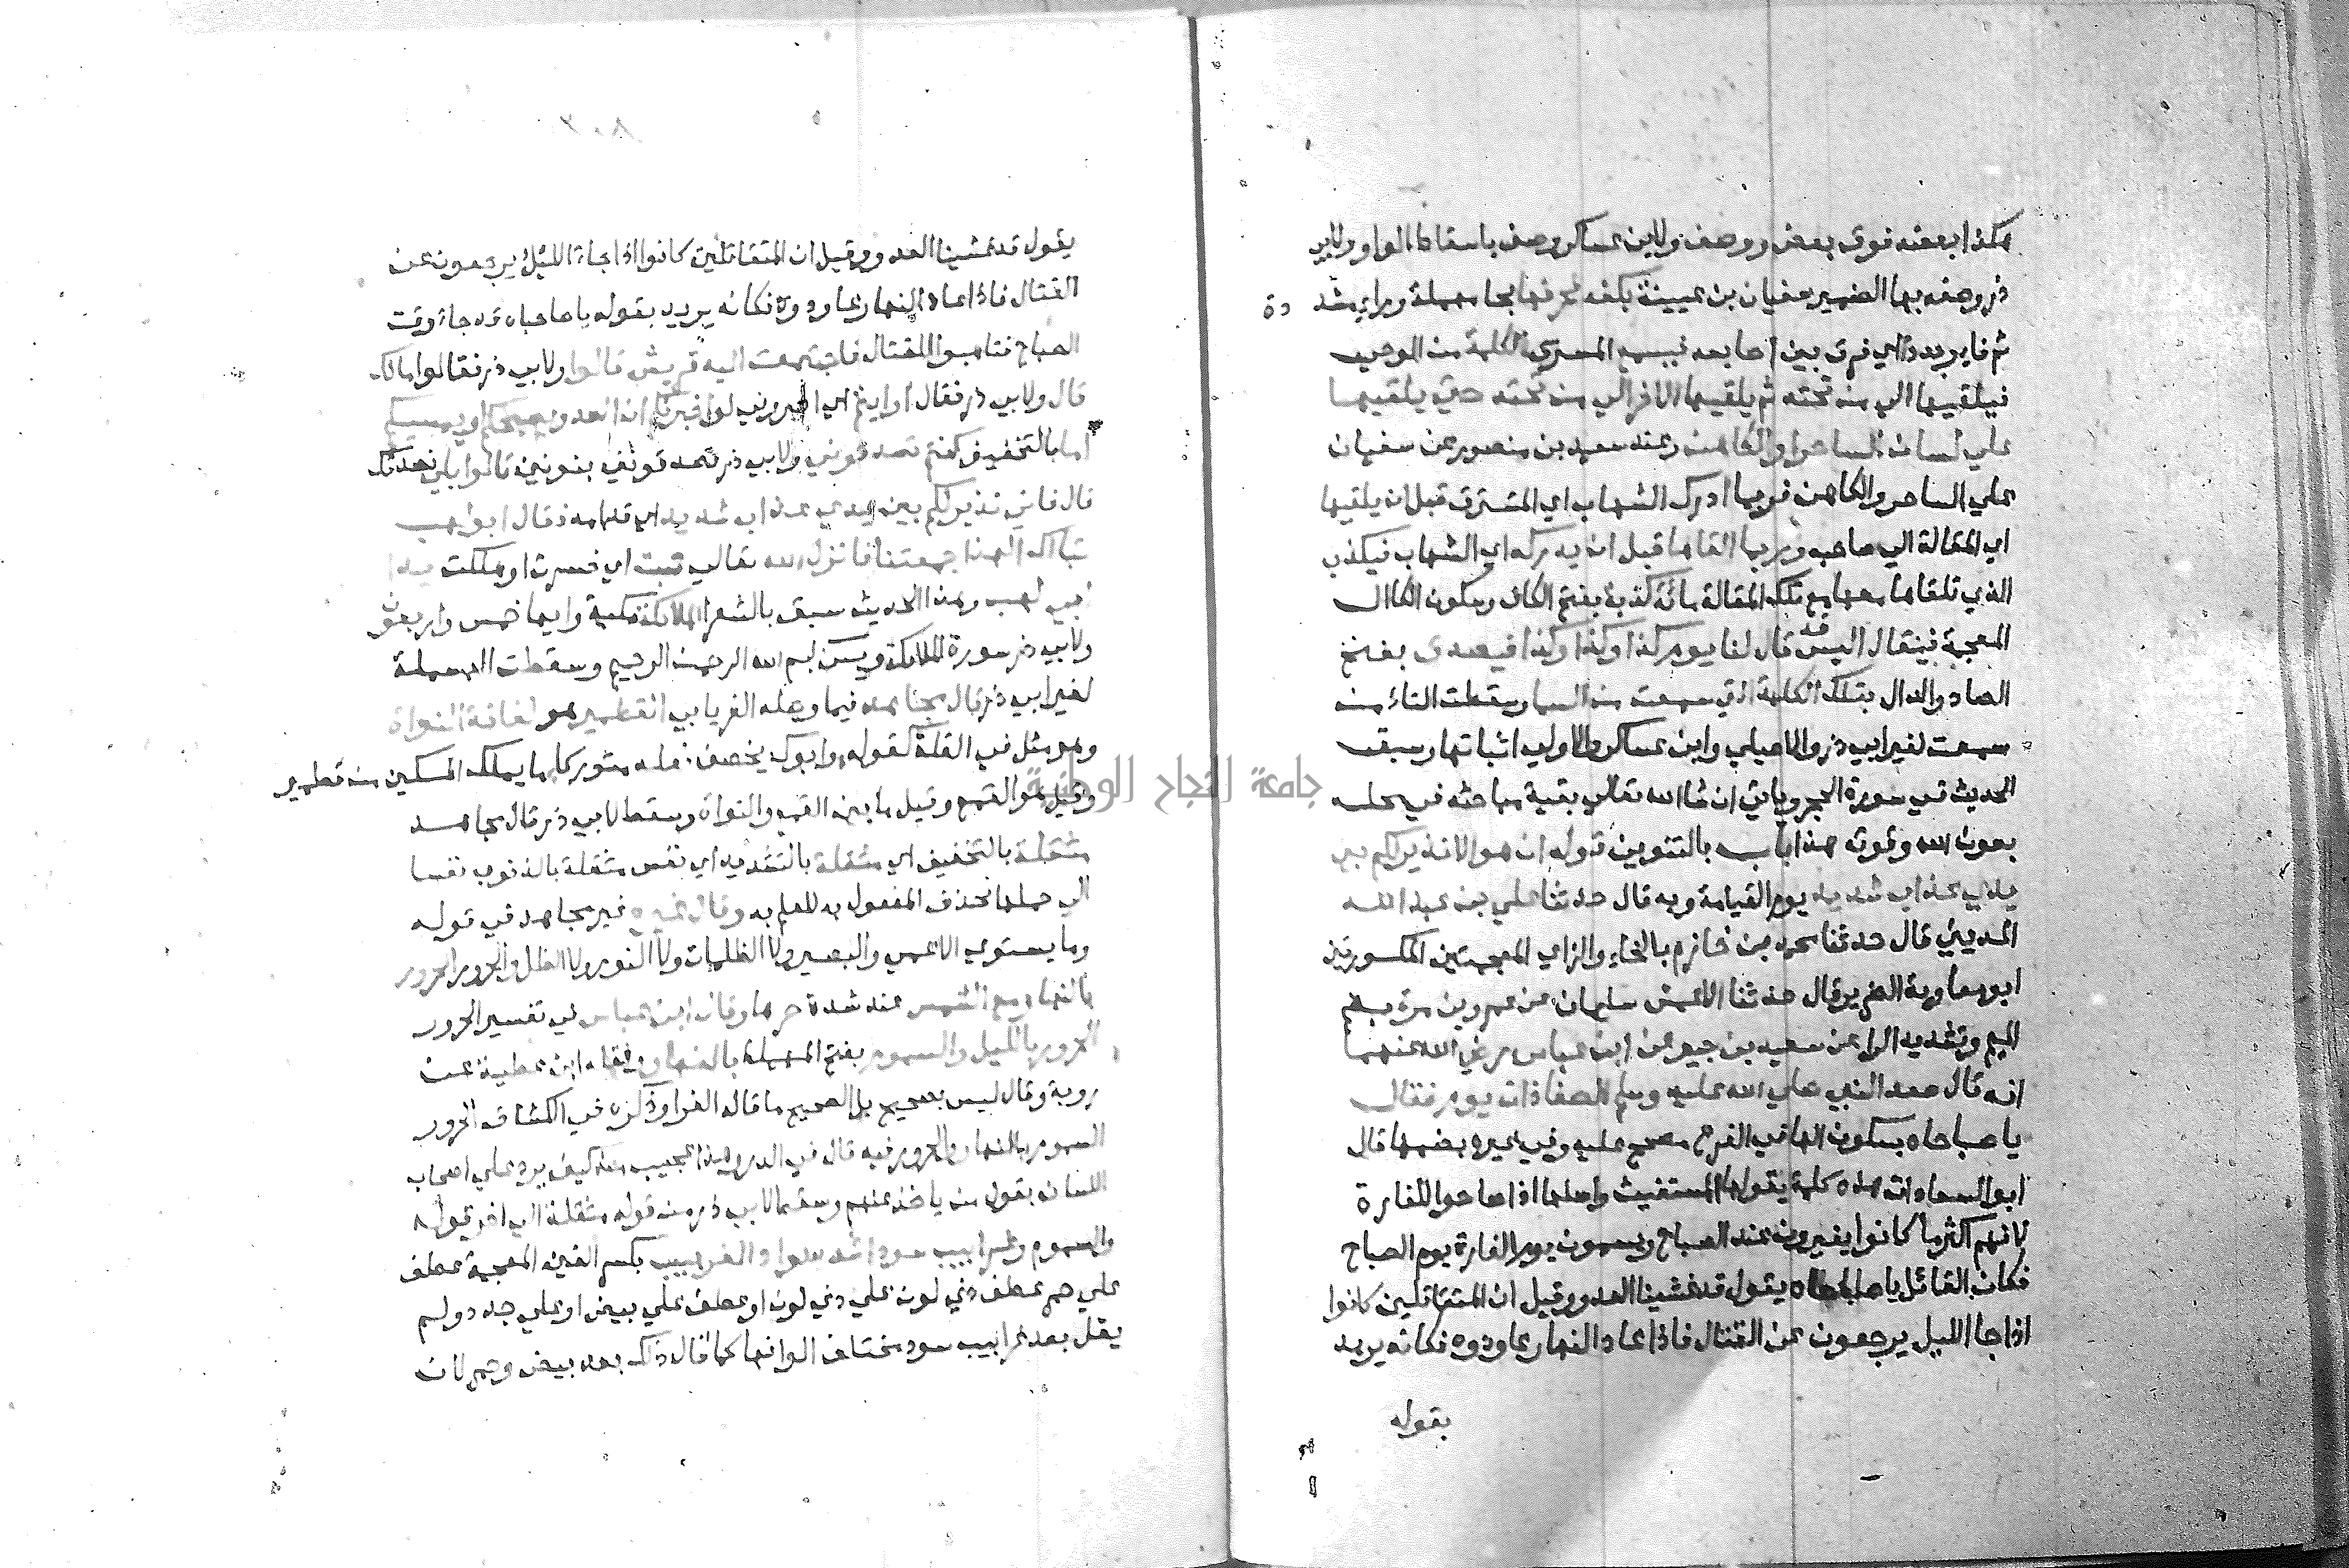 هكذا بعضه فوق بعض ووصف ولابن عساكر وصف باسقاط الواو ولابي
ذر وصفه بها الضمير سفيان بن عيينة بكفه فحرفها بحا مهملة وراي مشد دة
ثم فا وبدد اي فرق بين اصابعه فيسمع المسترق الكلمة من الوحي
فيلقيها الي من تحته ثم يلقيها الاخر الي من تحته حتي يلقيها
علي لسان الساحر او الكاهن وعند سعيد بن منصور عن سفيان
علي الساحر والكاهن فربما ادرك الشهاب اي المسترق قبل ان يلقيها
اي المقالة الي صاحبه وربما القاها قبل ان يدركه اي الشهاب فيكذب
الذي تلقاها معها مع تلك المقالة مائة كذبة بفتح الكاف وسكون الذال
المعجمة فيقال اليس قد قال لنا يوم كذا وكذا وكذا فيصدق بفتح
الصاد والدال بتلك الكلمة التي سمعت من السما وسقطت التاء من
سمعت لغير ابي ذر والاصيلي وابن عساكر والاولي اثباتها وسبق
الحديث في سورة الحجر وياتي ان شا الله تعالي بقية مباحثه في محله
بعون الله وقوته هذا باب بالتنوين قوله ان هو الا نذير لكم بين
يدي عذاب شديد يوم القيامة وبه قال حدثنا علي بن عبد الله
المديني قال حدثنا محمد بن خازم بالخاء والزاي المعجمتين المكسورتين
ابو معاوية الضرير قال حدثنا الاعمش سليمان عن عمرو بن مرة بضم
الميم وتشديد الرا عن سعيد بن جبير عن ابن عباس رضي الله عنهما
انه قال صعد النبي صلي الله عليه وسلم الصفا ذات يوم فقال
يا صباحاه بسكون الها في الفرع مصحح عليه وفي غيره بضمها قال
ابو السعادات هذه كلمة يقولها المستغيث واصلها اذا صاحوا للغارة
لانهم اكثر ما كانوا يغيرون عند الصباح ويسمون يوم الغارة يوم الصباح
فكان القائل يا صباحاه يقول قد غشينا العدو وقيل ان المتقاتلين كانوا
اذا جا الليل يرجعون عن القتال فاذا عاد النهار عاودوه فكانه يريد
بقوله
٣٠٨
يقول قد غشينا العدو وقيل ان المتقاتلين كانوا اذا جاء الليل يرجعون عن
القتال فاذا عاد النهار عاودوه فكانه يريد بقوله يا صاحباه قد جاء وقت
الصباح فتاهبوا للقتال فاجتمعت اليه قريش قالوا ولابي ذر فقالوا مالك
قال ولابي ذر فقال ارايتم اي اخبروني لو اخبرتكم ان العدو يصبحكم او يمسيكم
اما بالتخفيف كنتم تصدقوني ولابي ذر تصدقونني بنونين قالوا بلي نصدقك
قال فاني نذير لكم بين يدي عذاب شديد اي قدامه فقال ابو لهب
تبا لك الهذا جمعتنا فانزل الله تعالي تبت اي خسرت او هلكت يدا
ابي لهب وهذا الحديث سبق بالشعرا الملائكة مكية وايها خمس واربعون
ولابي ذر سورة الملائكة ويس بسم الله الرحمن الرحيم وسقطت البسملة
لغير ابي ذر قال مجاهد فيما وصله الفريابي القطمير هو لفافة النواة
وهو مثل في القلة كقوله وابوك يخصف نعله متوركا ما يملك المسكين من قطمير
وقيل هو القمع وقيل ما بين القمع والنواة وسقط لابي ذر قال مجاهد
مثقلة بالتخفيف اي مثقلة بالتشديد اي نفس مثقلة بالذنوب نفسا
الي حملها فحذف المفعول به للعلم به وقال غيره غير مجاهد في قوله
وما يستوي الاعمي والبصير ولا الظلمات ولا النور ولا الظل ولا الحرور الحرور
بالنهار مع الشمس عند شدة حرها وقال ابن عباس في تفسير الحرور
الحرور بالليل والسموم بفتح المهملة بالنهار ونقله ابن عطية عن
روبة وقال ليس بصحيح بل الصحيح ما قاله الفرا وذكره في الكشاف الحرور
السموم بالنهار والحرور فيه قال في الدر وهذا عجيب منه كيف يرد علي اصحاب
اللسان بقول من ياخذ عنهم وسقط لابي ذر من قوله مثقلة الي اخر قوله
والسموم وغرابيب سود اشد سواد الغربيب بكسر الغين المعجمة عطف
علي حمر عطف ذي لون علي ذي لون او عطف علي بيض او علي جدد ولم
يقل بعد غرابيب سود مختلف الوانها كما قال ذلك بعد بيض وحمر لان
جامعة النجاح الوطنية